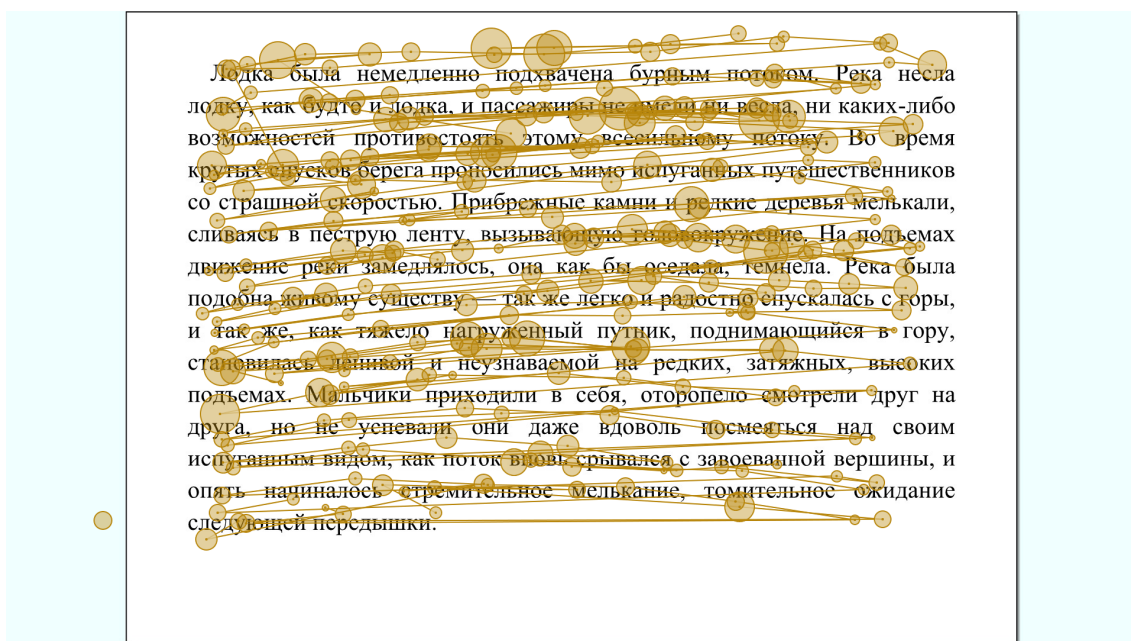 Лодка была немедленно подхвачена бурным потоком. Река несла
лодку, как будто и лодка, и пассажиры не имели ни весла, ни каких-либо
возможностей противостоять этому всесильному потоку. Во время
крутых спусков берега проносились мимо испуганных путешественников
со страшной скоростью. Прибрежные камни и редкие деревья мелькали,
сливаясь в пеструю ленту, вызывающую головокружение. На подъемах
движение реки замедлялось, она как бы оседала, темнела. Река была
подобна живому существу — так же легко и радостно спускалась с горы,
и так же, как тяжело нагруженный путник, поднимающийся в гору,
становилась ленивой и неузнаваемой на редких, затяжных, высоких
подъемах. Мальчики приходили в себя, оторопело смотрели друг на
друга, но не успевали они даже вдоволь посмеяться над своим
испуганным видом, как поток вновь срывался с завоеванной вершины, и
опять начиналось стремительное мелькание, томительное ожидание
следующей передышки.